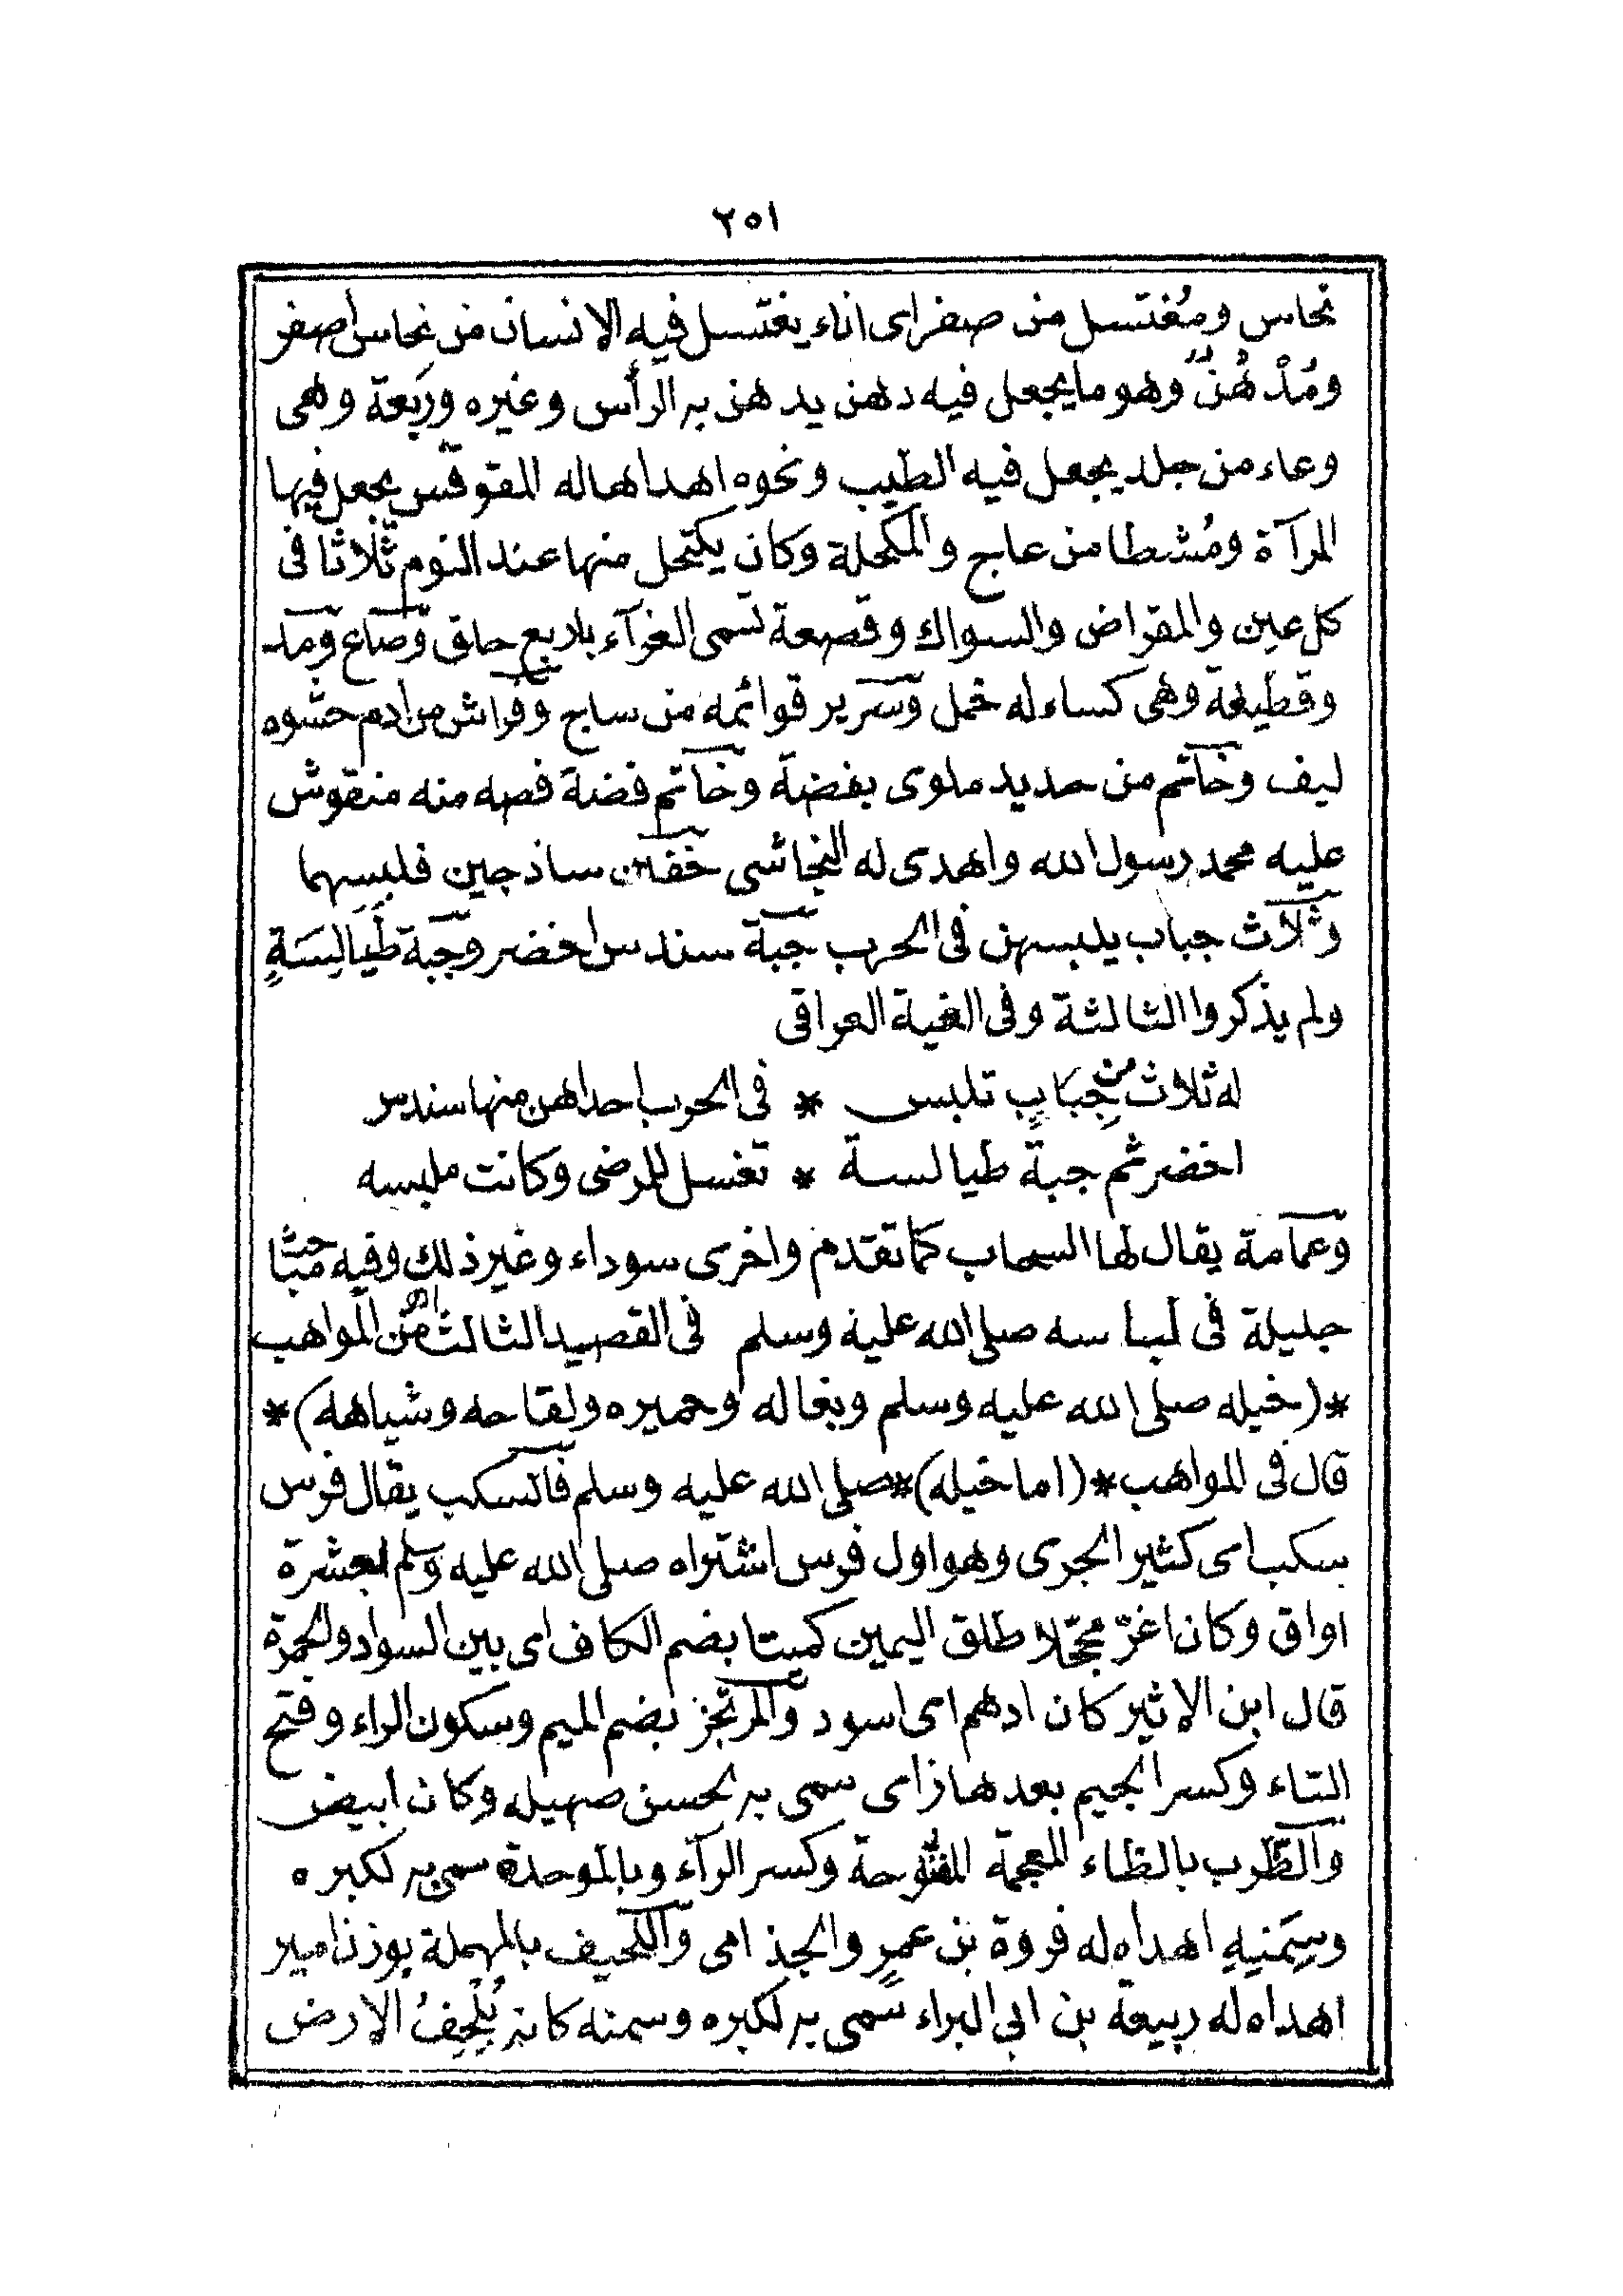 ٢٥١
نحاس ومُغتسل من صفراى اناء يغتسل فيه الانسان من نحاس أصفر
ومُدْهُنٌ وهو مايجعل فيه دهن يدهن به الرأس وغيره ورَبعة وهى
وعاء من جلد يجعل فيه الطيب ونحوه اهداهاله المقوقس يجعل فيها
المرآة ومُشطا من عاج والمكحلة وكان يكتحل منها عند النوم ثلاثا فى
كل عين والمقراض والسواك وقصعة تسمى الغرآء باربع حلق وصاع ومد
وقطيفة وهى كساءله خمل وسرير قوائمه من ساج وفراش من أدم حشوه
ليف وخاتم من حديد ملوى بفضة وخاتم فضة فصه منه منقوش
عليه محمد رسول الله واهدى له النجاشى خفين ساذجين فلبسهما
وثلاث جباب يلبسهن فى الحرب جبة سندس اخضر وجبة طَيَالِسَةٍ
ولم يذكروا الثالثة وفى الفية العراقى
له ثلاث من جِبَابٍ تلبس * فى الحرب احداهن منها سندس
اخضر ثم جبة طيالسة * تغسل للمرضى وكانت ملبسه
وعمامة يقال لها السحاب كما تقدم واخرى سوداء وغير ذلك وفيه مباحث
جليلة فى لباسه صلى الله عليه وسلم فى القصيد الثالث من المواهب اهـ
*(خيله صلى الله عليه وسلم وبغاله وحميره ولقاحه وشياهه)*
قال فى المواهب *(اما خيله)* صلى الله عليه وسلم فالسكب يقال فرس
سكب اى كثير الجرى وهو اول فرس اشتراه صلى الله عليه وسلم بعشرة
اواق وكان اغرّ محجّلا طلق اليمين كميتا بضم الكاف اى بين السواد والحمرة
قال ابن الاثير كان ادهم اى اسود والمرتجز بضم الميم وسكون الراء وفتح
التاء وكسر الجيم بعدها زاى سمى به لحسن صهيله وكان ابيض
والظَّرب بالظاء المعجمة المفتوحة وكسر الرآء وبالموحدة سمى به لكبره
وسِمَنِهِ اهداه له فروة بن عمرٍو الجذامى واللحيف بالمهملة بوزن امير
اهداه له ربيعة بن ابى البراء سمى به لكبره وسمنه كانه يُلْحِفُ الارض